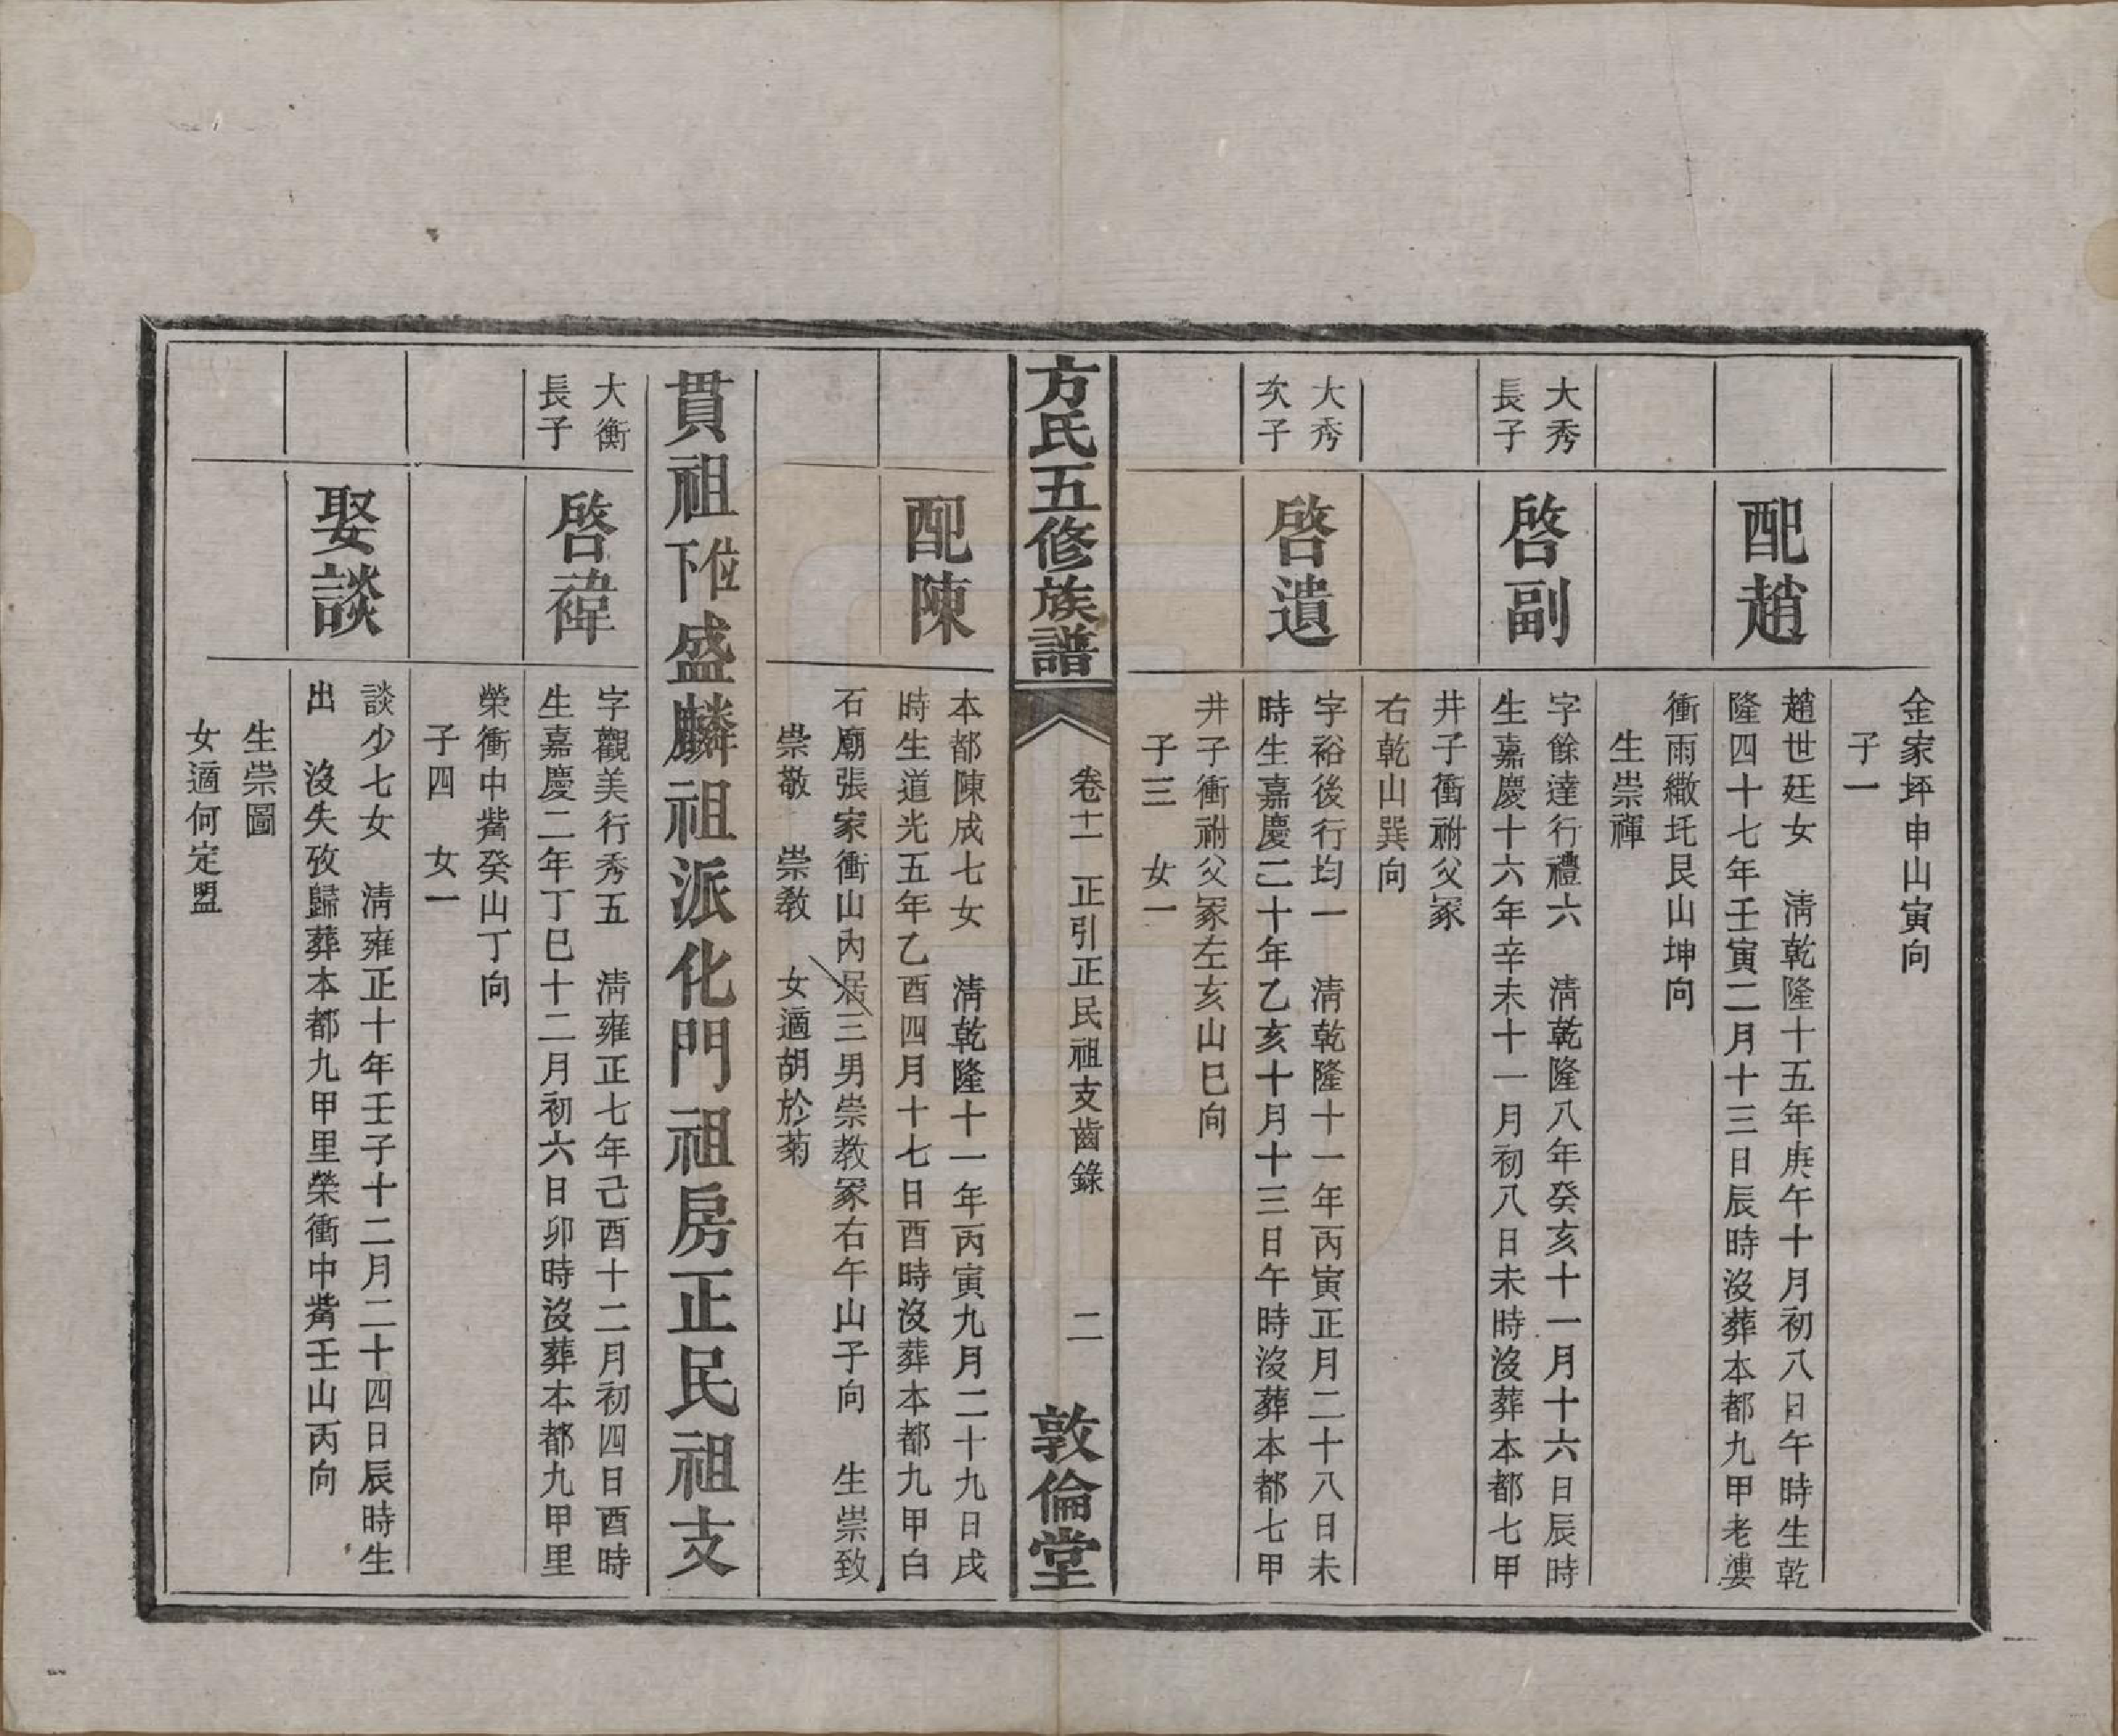 金家坪申山寅向
子一
配趙
趙世廷女　清乾隆十五年庚午十月初八日午時生乾
隆四十七年壬寅二月十三日辰時沒葬本都九甲老漊
衝雨繖坵艮山坤向
生崇禪
大秀
長子
啓副
字餘達行禮六　清乾隆八年癸亥十一月十六日辰時
生嘉慶十六年辛未十一月初八日未時沒葬本都七甲
井子衝祔父冢
右乾山巽向
大秀
次子
啓遺
字裕後行均一　清乾隆十一年丙寅正月二十八日未
時生嘉慶二十年乙亥十月十三日午時沒葬本都七甲
井子衝祔父冢左亥山巳向
子三　女一
方氏五修族譜
卷十一　正引正民祖支齒錄　二
敦倫堂
配陳
本都陳成七女　清乾隆十一年丙寅九月二十九日戌
時生道光五年乙酉四月十七日酉時沒葬本都九甲白
石廟張家衝山內居三男崇教冢右午山子向　生崇致
崇敬　崇教　女適胡於菊
貫祖下位盛麟祖派化門祖房正民祖支
大衡
長子
啓禕
字觀美行秀五　清雍正七年己酉十二月初四日酉時
生嘉慶二年丁巳十二月初六日卯時沒葬本都九甲里
榮衝中觜癸山丁向
子四　女一
娶談
談少七女　清雍正十年壬子十二月二十四日辰時生
出　沒失攷歸葬本都九甲里榮衝中觜壬山丙向
生崇圖
女適何定盟